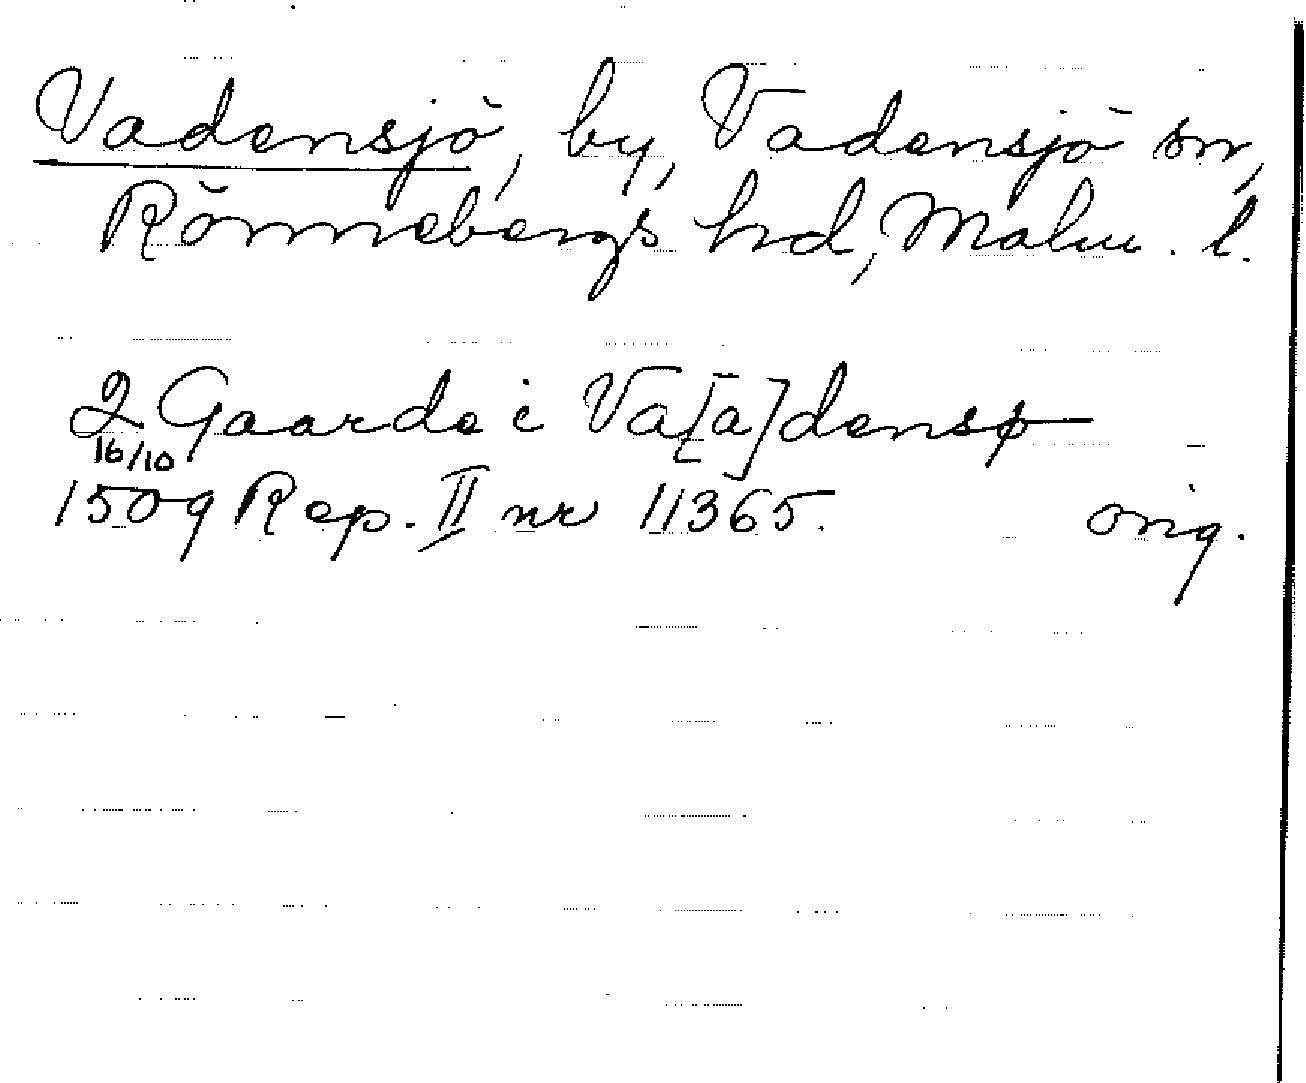 Vadensjö, by, Vadensjö sn,
Rönnebergs hd, Malm. l.
2 Gaarde i Va[a]densø
16/10
1509 Rep. II nr 11365. orig.